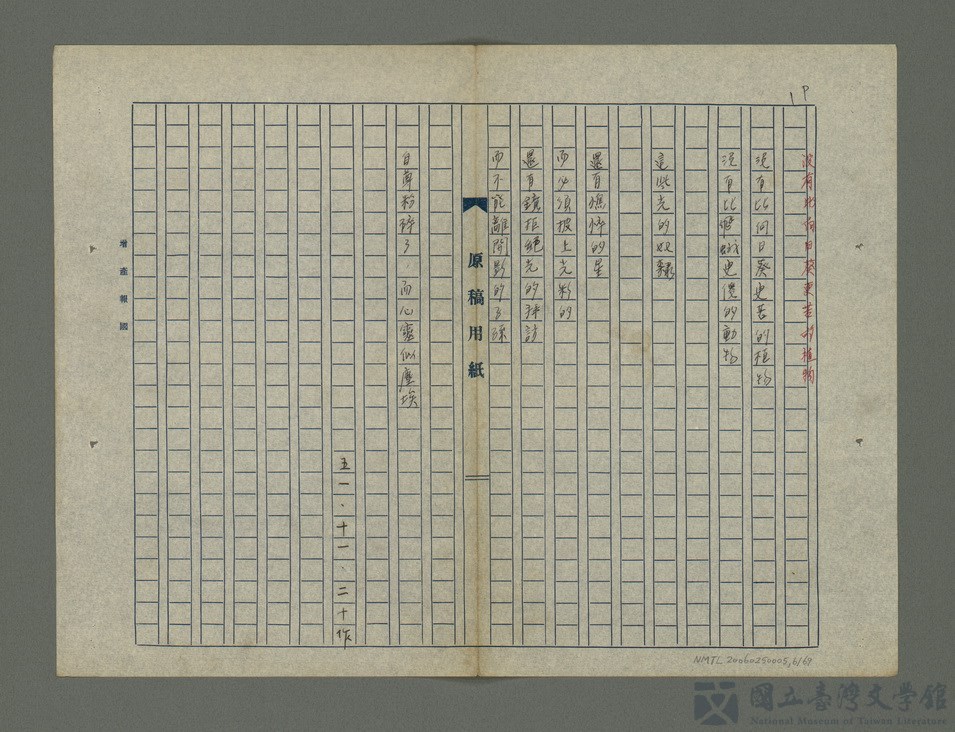 1P
沒有比向日葵更苦的植物
沒有比向日葵更苦的植物
沒有比螃蟹更傻的動物
這些光的奴隸
還有憔悴的星
而必須披上光彩的
還有鏡拒絕光的拜訪
而不能離開影的
原稿用紙
自尊粉碎了.而心靈似塵埃
五一.十一.二十作
增產報國
NMTL 20060250005,6/69
國立臺灣文學館
National Museum of Taiwan Literature